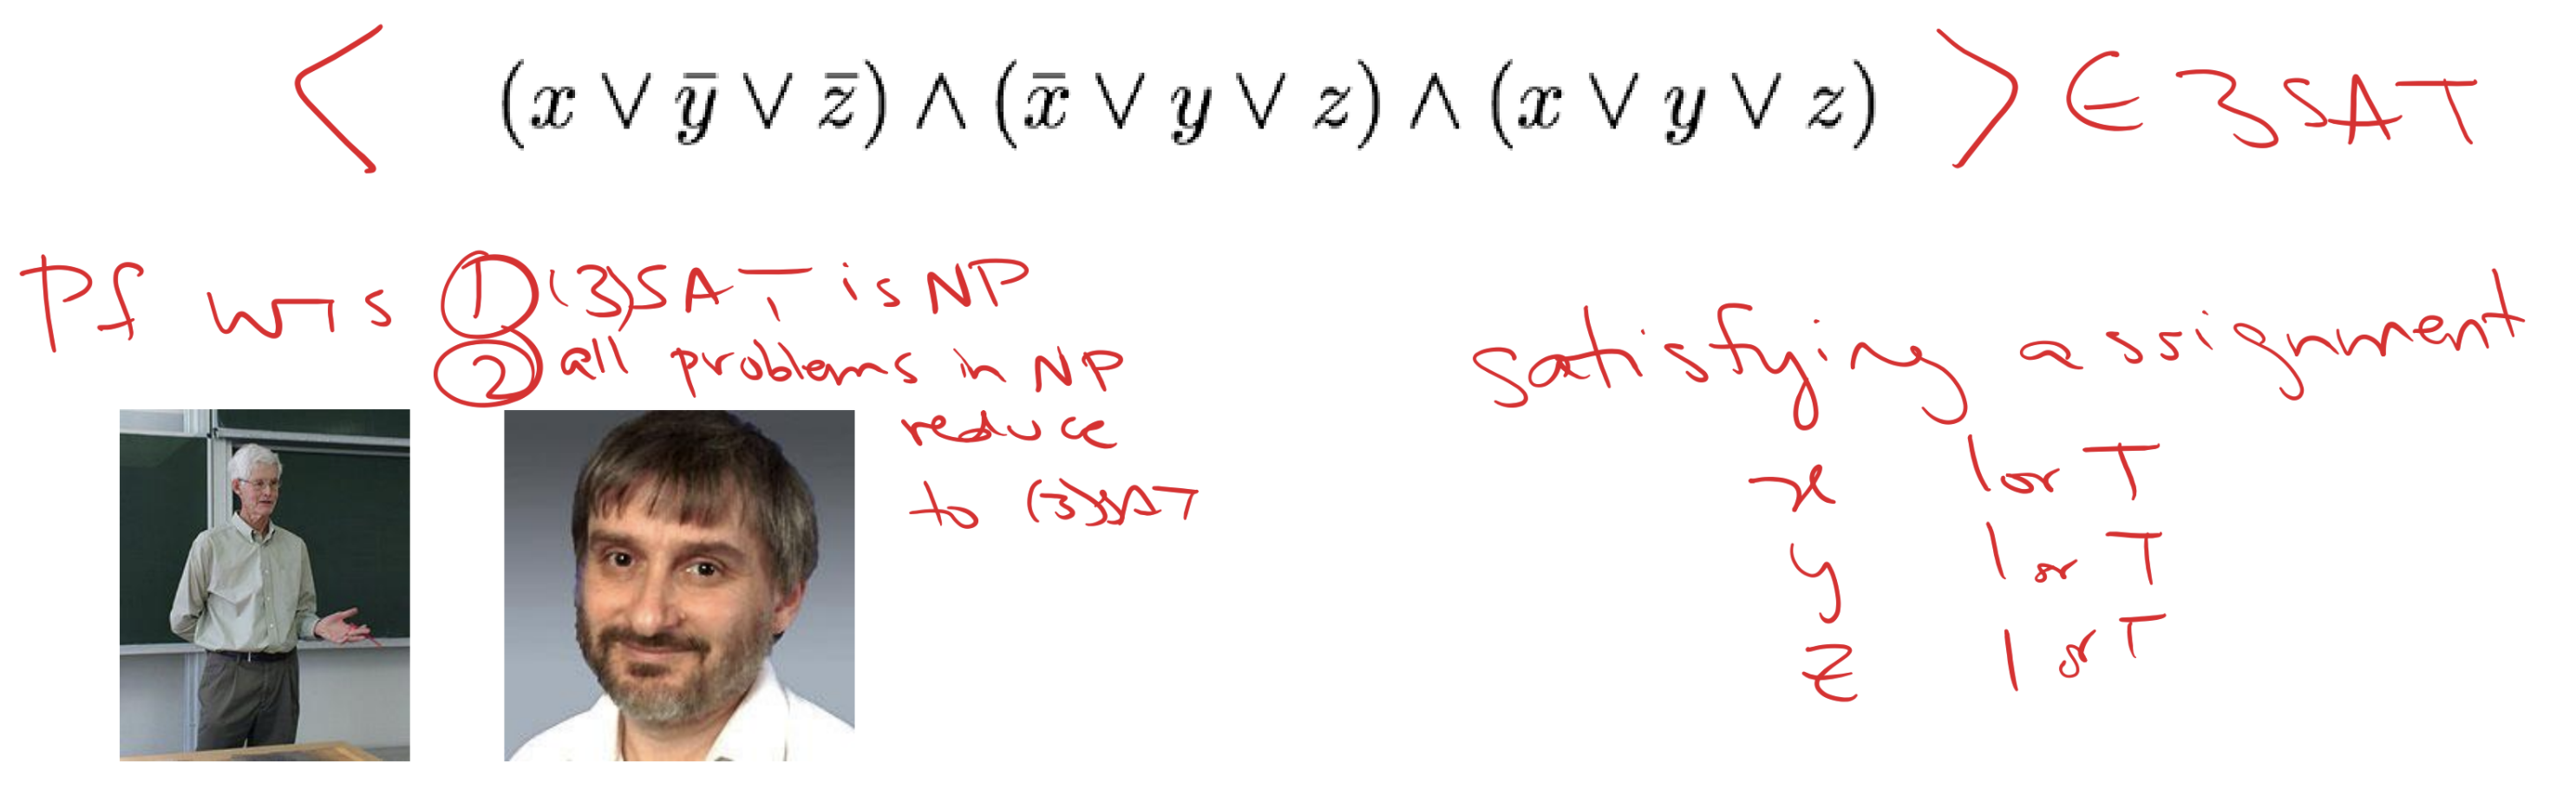 < (x ∨ ȳ ∨ z̄) ∧ (x̄ ∨ y ∨ z) ∧ (x ∨ y ∨ z) > ∈ 3SAT
Pf WTS ① (3)SAT is NP
② all problems in NP
reduce
to (3)SAT
satisfying assignment
x 1 or T
y 1 or T
z 1 or T